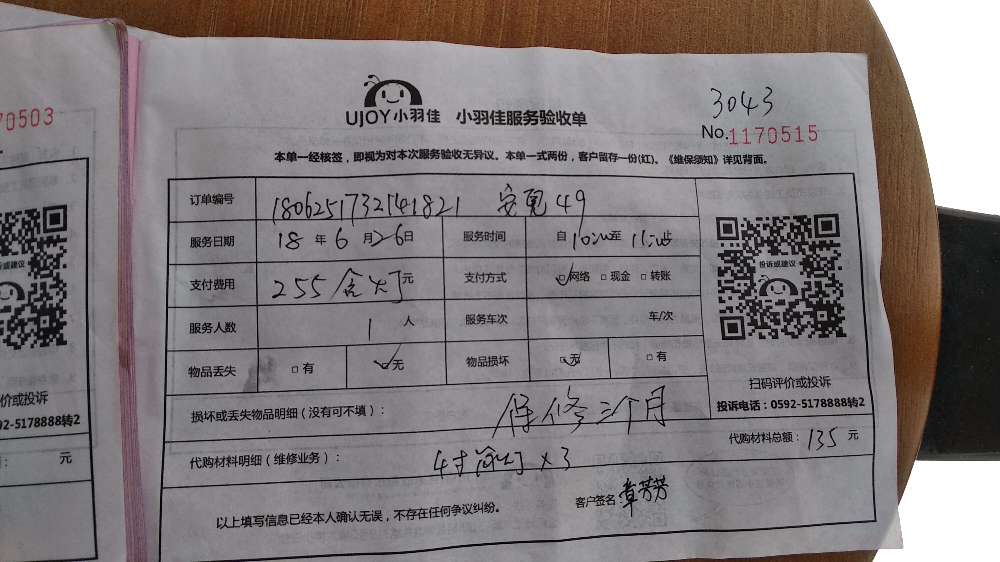 70503
价或投诉
592-5178888转2
元
3043
UJOY小羽佳 小羽佳服务验收单
No.1170515
本单一经核签，即视为对本次服务验收无异议。本单一式两份，客户留存一份(红)。《维保须知》详见背面。
订单编号 1806251732141821 49
服务日期 18 年 6 月 26 日 服务时间 自 10:00 至 11:00 止
支付费用 255 含灯 元 支付方式 网络 现金 转账
服务人数 1 人 服务车次 车/次
物品丢失 有 无 物品损坏 无 有
投诉或建议
扫码评价或投诉
投诉电话：0592-5178888转2
损坏或丢失物品明细（没有可不填）： 保修三个月
代购材料明细（维修业务）： 4寸 灯 x3 代购材料总额：135 元
以上填写信息已经本人确认无误，不存在任何争议纠纷。 客户签名：章芳芳